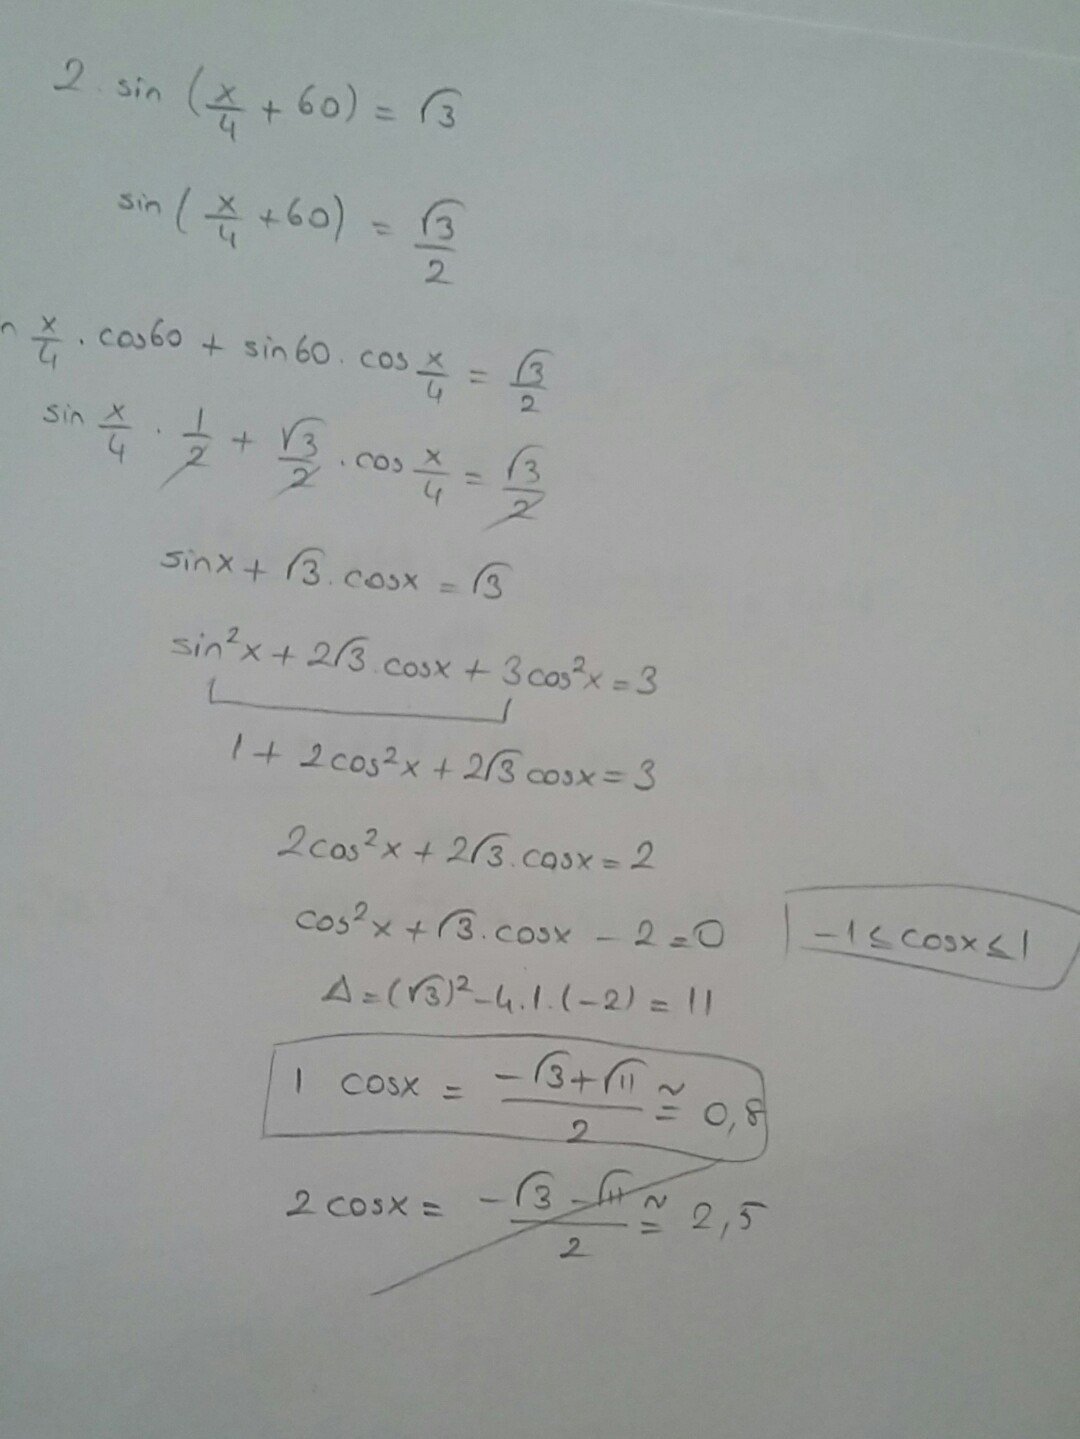 2. sin (x/4 + 60) = √3
sin (x/4 + 60) = √3/2
n x/4 . cos60 + sin60. cos x/4 = √3/2
sin x/4 . 1/2 + √3/2 . cos x/4 = √3/2
sinx + √3. cosx = √3
sin²x + 2√3.cosx + 3cos²x = 3
1 + 2cos²x + 2√3 cosx = 3
2cos²x + 2√3.cosx = 2
cos²x + √3.cosx - 2 = 0
-1 ≤ cosx ≤ 1
Δ = (√3)² - 4.1.(-2) = 11
1 cosx = -√3+√11/2 ≅ 0,8
2 cosx = -√3-√11/2 ≅ 2,5